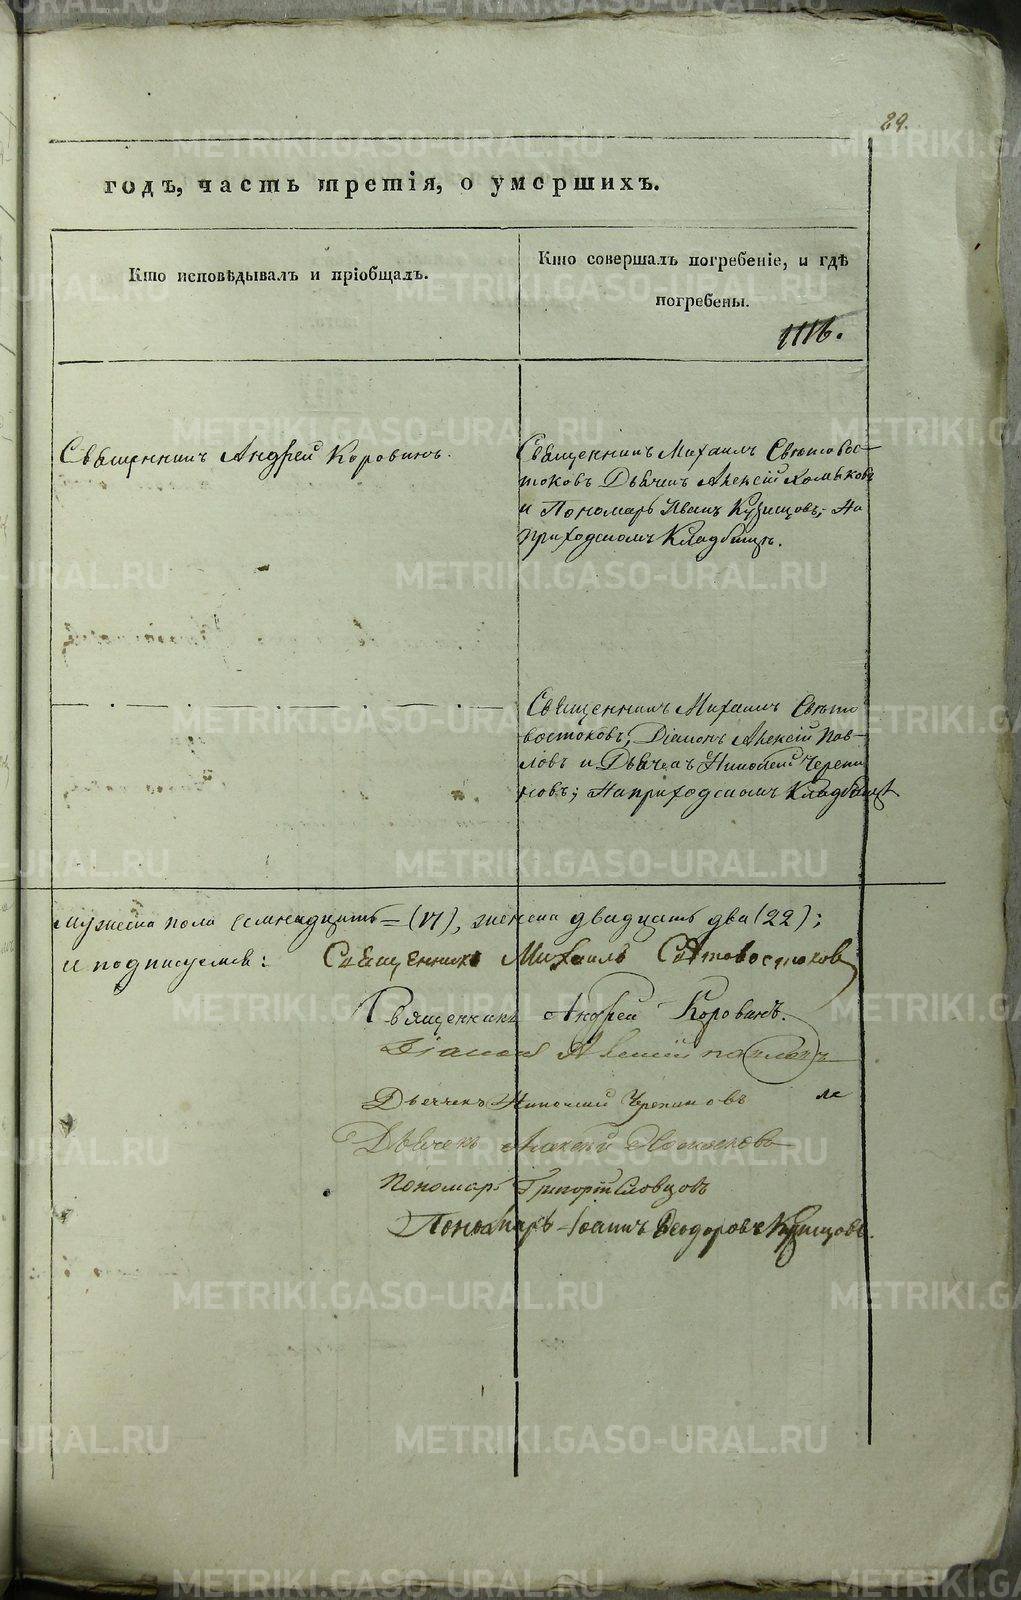 29.
годъ, часть третія, о умершихъ.
Кто исповѣдывалъ и пріобщалъ.
Кто совершалъ погребеніе, и гдѣ
погребены.
1116.
Священникъ Андрей Коровинъ.
Священникъ Михаилъ Святовос-
токовъ Дьячекъ Алексій Хомяковъ
и Пономарь Иванъ Кузнецовъ; На
приходскомъ Кладбищѣ.
Священникъ Михаилъ Свято
востоковъ, Діаконъ Алексій Пав-
ловъ и Дьячекъ Николай Черепа
новъ; На приходскомъ Кладбищѣ
мужеска пола семнадцать = (17), женска двадцать два (22);
и подписуемся: Священникъ Михаилъ Святовостоковъ
Священникъ Андрей Коровинъ.
Діаконъ Алексій Павловъ
Дьячекъ Николай Черепановъ
Дьячекъ Алексѣй Хомяковъ
Пономарь Григорій Словцовъ
Пономарь Іоаннъ Феодоровъ Кузнецовъ.
METRIKI.GASO-URAL.RU